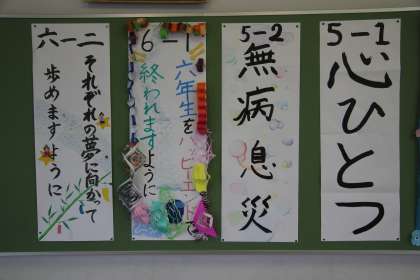 5-1
心ひとつ
5-2
無病息災
6-1
六年生を
ハッピーエンドで
終われますように
六一二
それぞれの夢に向かって
歩めますように